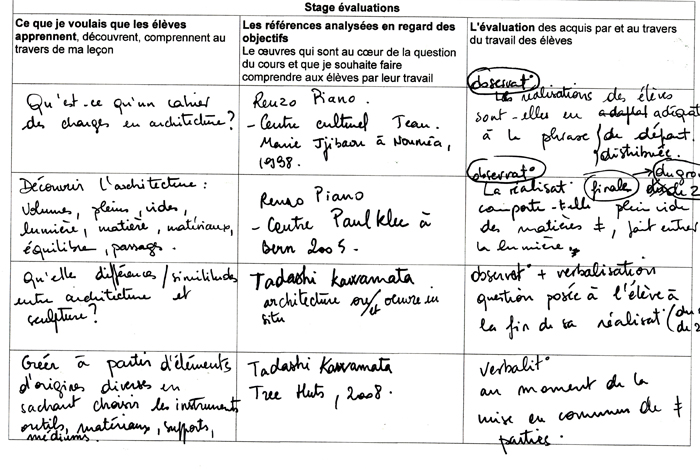 Stage évaluations
Ce que je voulais que les élèves
apprennent, découvrent, comprennent au
travers de ma leçon
Les références analysées en regard des
objectifs
Le œuvres qui sont au cœur de la question
du cours et que je souhaite faire
comprendre aux élèves par leur travail
L'évaluation des acquis par et au travers
du travail des élèves
Qu'est-ce qu'un cahier
des charges en architecture ?
Renzo Piano.
- Centre culturel Jean.
Marie Tjibaou à Nouméa,
1998.
observat°
Les réalisations des élèves
sont-elles en
à la phrase de départ.
distribués.
Découvrir l'architecture :
volumes, pleins, vides,
lumière, matière, matériaux,
équilibre, passages.
Renzo Piano
- Centre Paul Klee à
Bern 2005.
observat°
La réalisat° finale
comporte-t-elle plein vide
des matières ≠, fait entrer
la lumière,
Qu'elle différences / similitudes
entre architecture et
sculpture ?
Tadashi Kawamata
architecture ou/et oeuvre in
situ
observat° + verbalisation
question posée à l'élève à
la fin de sa réalisat°
Créer à partir d'éléments
d'origines diverses en
sachant choisir les instruments
outils, matériaux, supports,
médiums.
Tadashi Kawamata
Tree Huts, 2008.
verbalit°
au moment de la
mise en commun de ≠
parties.